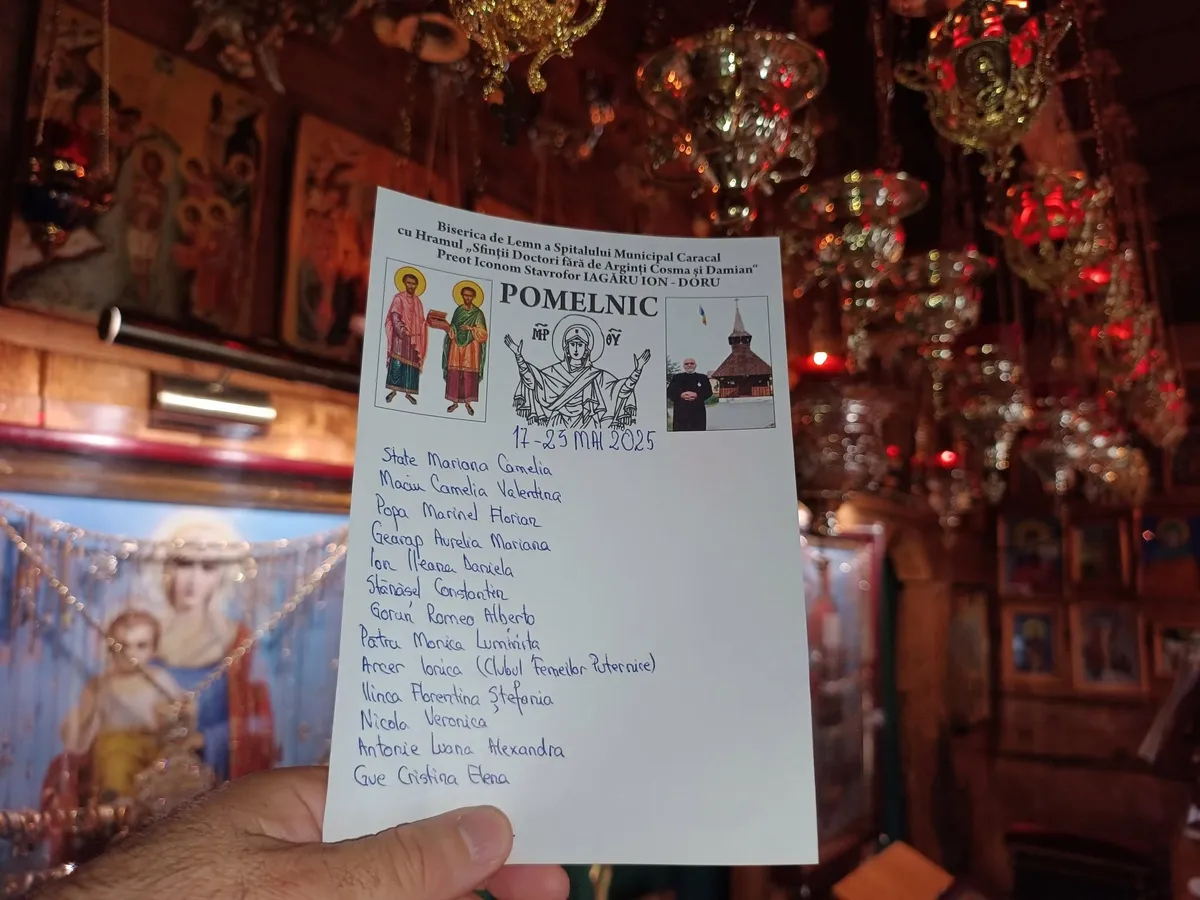 Biserica de Lemn a Spitalului Municipal Caracal
cu Hramul „Sfinții Doctori fără de Arginți Cosma și Damian“
Preot Iconom Stavrofor IAGĂRU ION - DORU
POMELNIC
MP ΘY
17-23 MAI 2025
State Mariana Camelia
Maciu Camelia Valentina
Popa Marinel Florian
Gearap Aurelia Mariana
Ion Ileana Daniela
Stănășel Constantin
Gorun Romeo Alberto
Patru Monica Luminița
Arcer Ionica (Clubul Femeilor Puternice)
Ilinca Florentina Ștefania
Nicola Veronica
Antonie Luana Alexandra
Gue Cristina Elena